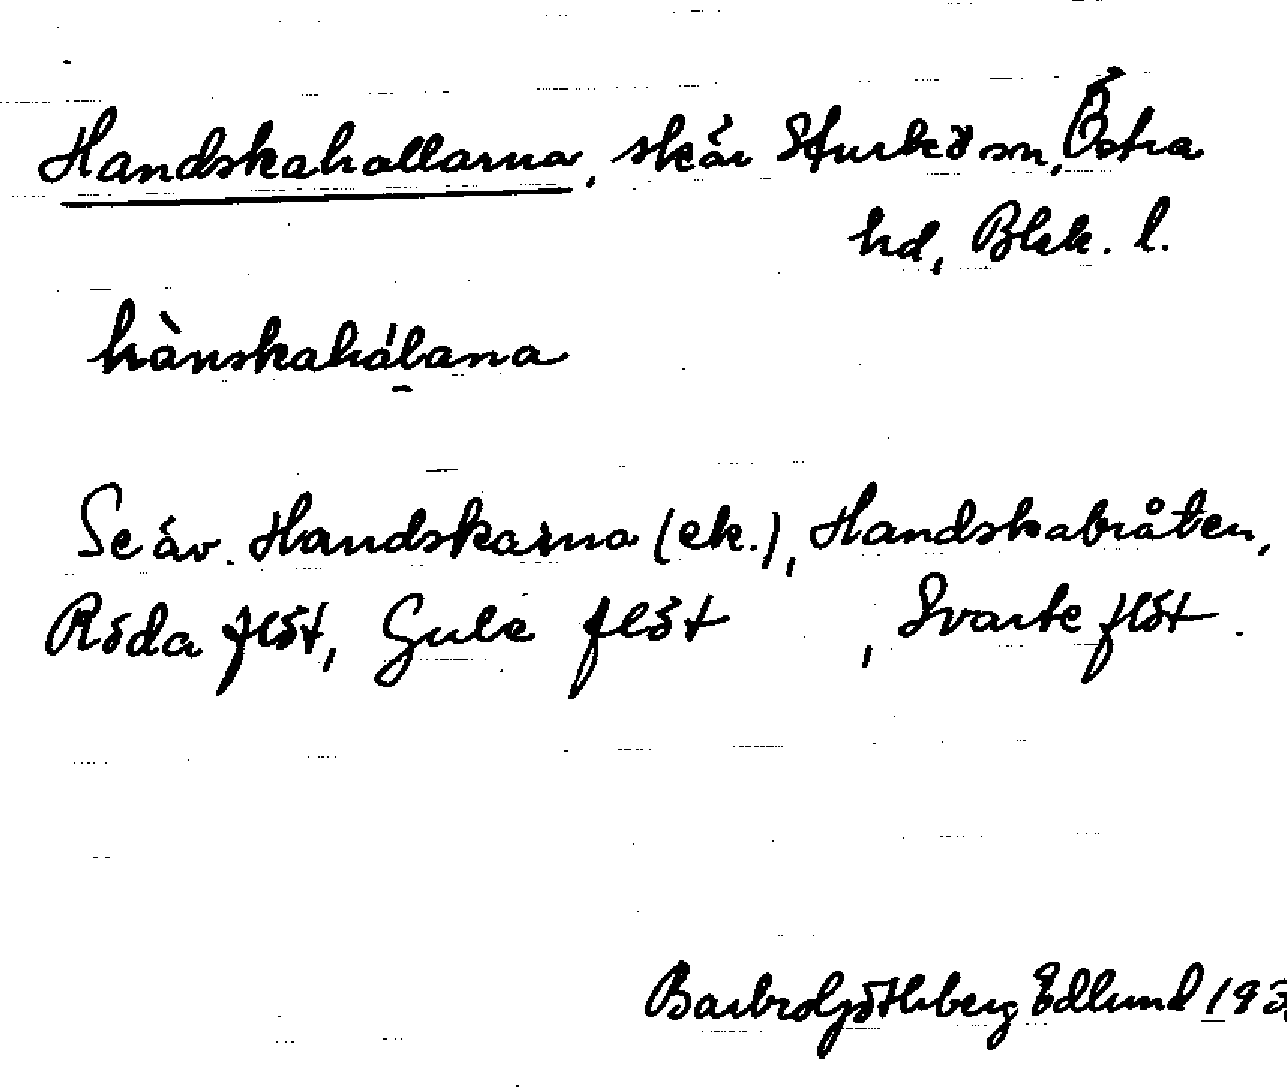 Handskahallarna, skär Sturkö sn, Östra
hd, Blek. l.
hànskahálana
Se äv. Handskarna (ek.), Handskabråten,
Röda flöt, Gule flöt , Svarte flöt.
Barbro Göthberg Edlund 193